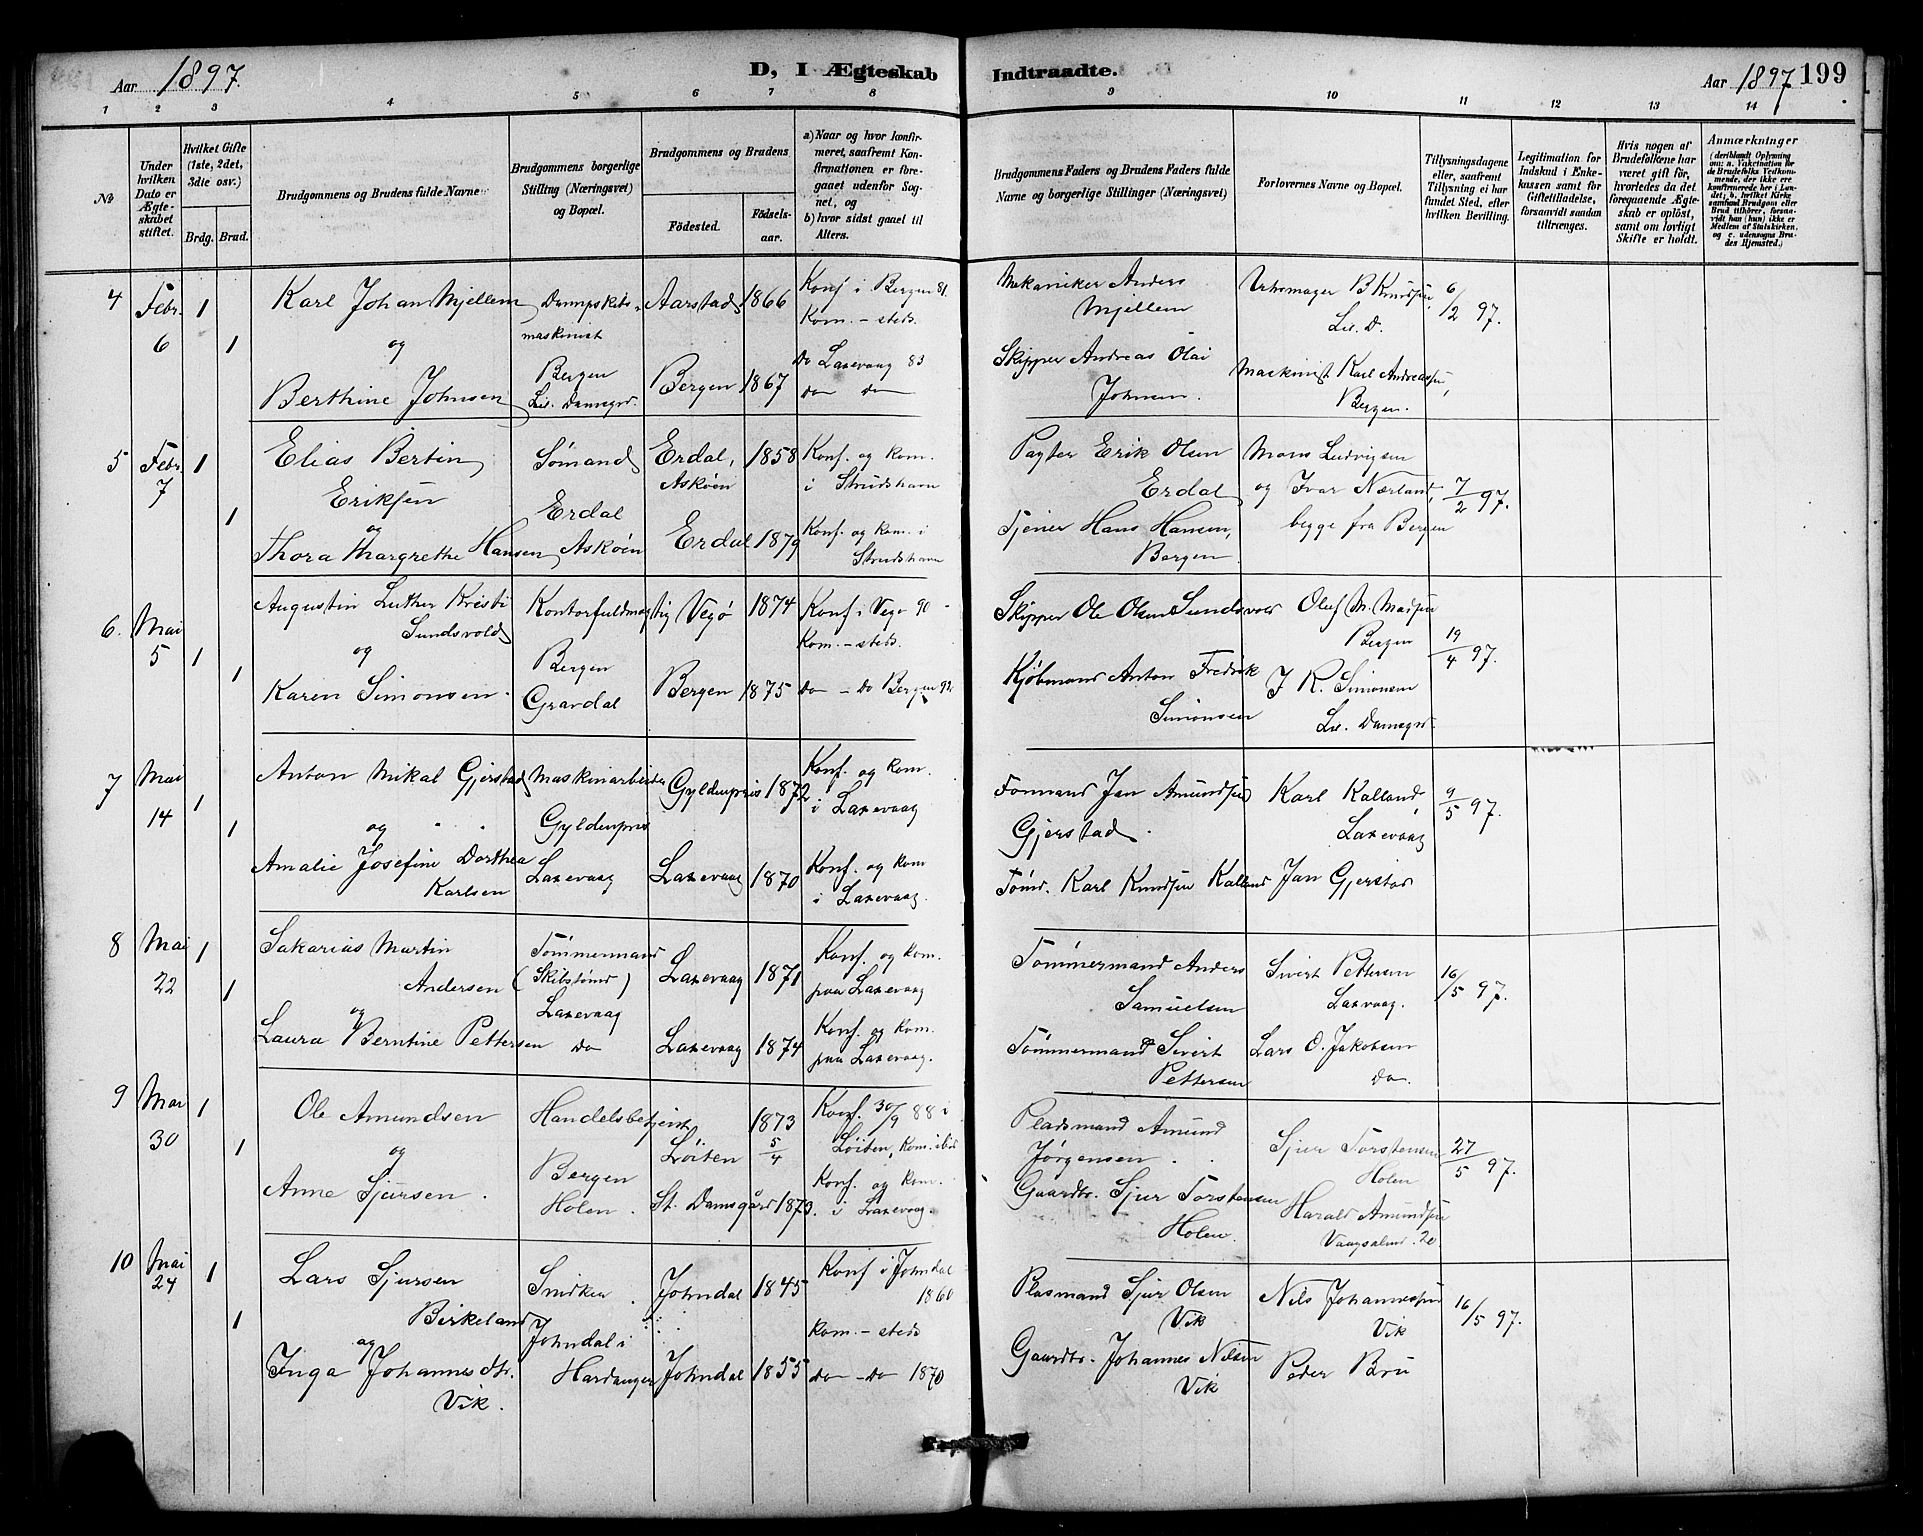 Aar 1897.
D, I Ægteskab
Indtraadte.
Aar 1897 199
1 2 3 4 5 6 7 8 9 10 11 12 13 14
№
Under hvilken Dato er Ægteskabet stiftet.
Hvilket Gifte (1ste, 2det, 3die osv.)
Brdg. Brud.
Brudgommens og Brudens fulde Navne
Brudgommens borgerlige Stilling (Næringsvei) og Bopæl.
Brudgommens og Brudens
Födested.
Födselsaar.
a) Naar og hvor konfirmeret, saafremt Konfirmationen er foregaaet udenfor Sognet, og
b) hvor sidst gaaet til Alters.
Brudgommens Faders og Brudens Faders fulde Navne og borgerlige Stillinger (Næringsvei)
Forlovernes Navne og Bopæl.
Tillysningsdagene eller, saafremt Tillysning ei har fundet Sted, efter hvilken Bevilling.
Legitimation for Indskud i Enkekassen samt for Giftetilladelse, forsaavidt saadan tiltrænges.
Hvis nogen af Brudefolkene har været gift før, hvorledes da det foregaaende Ægteskab er oplöst, samt om lovligt Skifte er holdt.
Anmærkninger
4 Febr. 6 1 1
Karl Johan Mjellem
og
Berthine Johnsen
Dampskibsmaskinist
Bergen
Lil. Damsgrd.
Aarstad 1866
Bergen 1867
Konf i Bergen 81.
Kom. - steds.
Do Laxevaag 83
do do
Mekaniker Anders
Mjellem
Skipper Andreas Olai
Johnsen.
Urhmager B Knudsen
Lil. D.
Maskinist Karl Andreasen,
Bergen.
6/2 97.
5 Febr. 7 1 1
Elias Bertin
Eriksen
og
Thora Margrethe Hansen
Sømand
Erdal
Askøen
Erdal, Askøen 1858
Erdal 1879
Konf. og kom.
i Strudshavn
Konf. og kom. i
Strudshavn
Pagter Erik Olsen
Erdal
Tjener Hans Hansen,
Bergen
Mons Ludvigsen
og Ivar Nærland,
begge fra Bergen
7/2 97.
6. Mai 5 1 1
Augustin Luther Kristi
Sundsvold
og
Karen Simonsen.
Kontorfuldmægtig
Bergen
Gravdal
Vegø 1874
Bergen 1875
Konf. i Vegø 90
Kom. - steds.
do - Do Bergen 92
Skipper Ole Olsen Sundsvold
Kjøbmand Anton Fredrik
Simonsen
Oluf M. Madsen
Bergen
J R. Simonsen
Lil. Damsgrd.
19/4 97.
7 Mai 14 1 1
Anton Mikal Gjerstad
og
Amalie Josefine Dorthea
Karlsen
Maskinarbeider
Gyldenpris
Laxevaag
Gyldenpris 1872
Laxevaag 1870
Konf. og kom.
i Laxevaag
Konf. og kom
i Laxevaag.
Formand Jan Amundsen
Gjerstad.
Tømd. Karl Knudsen Kalland
Karl Kalland,
Laxevaag
Jan Gjerstad
9/5 97.
8 Mai 22 1 1
Sakarias Martin
Andersen
og
Laura Berntine Pettersen
Tømmermand
(Skibstømd)
Laxevaag
do
Laxevaag 1871
Laxevaag 1874
Konf. og kom.
paa Laxevaag
Konf. og kom.
paa Laxevaag.
Tømmermand Anders
Samuelsen
Tømmermand Sivert
Pettersen
Sivert Pettersen
Laxvaag.
Lars O. Jakobsen
do.
16/5 97.
9 Mai 30 1 1
Ole Amundsen
og
Anne Sjursen.
Handelsbetjent
Bergen
Holen.
Löiten 1873 5/4
St. Damsgård 1873.
Konf. 30/9 88 i
Löiten, Kom. ibid
Konf. og kom.
i Laxevaag.
Pladsmand Amund
Jørgensen.
Gaardbr. Sjur Torstensen
Holen.
Sjur Torstensen
Holen
Harald Amundsen
27/5 97.
10 Mai 24 1 1
Lars Sjursen
Birkeland
og
Inga Johannesdtr.
Vik.
Snidker.
Johndal i
Hardanger
Johndal 1845
Johndal 1855
Konf i Johndal
1860
kom. - steds
do - Do 1870
Plasmand Sjur Olsen
Vik
Gaardbr. Johannes Nilsen
Vik
Nils Johannesen
Vik
Peder Bru
16/5 97.